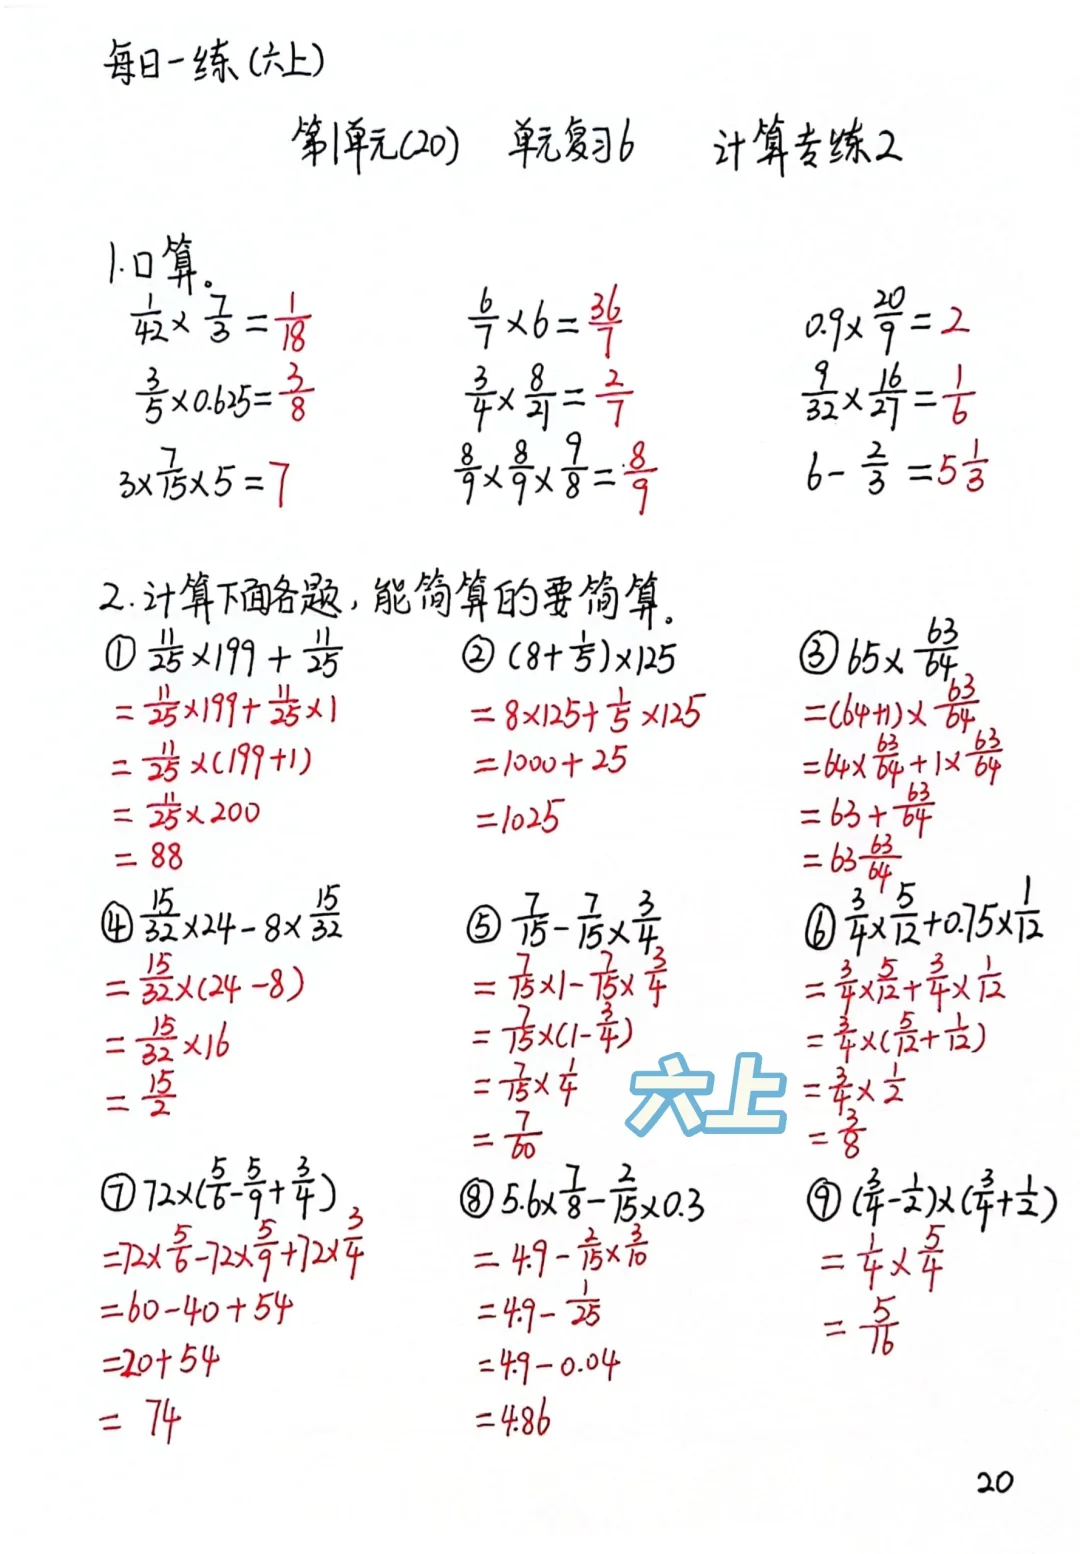 每日一练(六上)
第1单元(20) 单元复习6 计算专练2
1.口算。
1/42 × 7/3 = 1/18 6/7 × 6 = 36/7 0.9 × 20/9 = 2
3/5 × 0.625 = 3/8 3/4 × 8/21 = 2/7 9/32 × 16/27 = 1/6
3 × 7/15 × 5 = 7 8/9 × 8/9 × 9/8 = 8/9 6 - 2/3 = 5 1/3
2.计算下面各题,能简算的要简算。
① 11/25 × 199 + 11/25
= 11/25 × 199 + 11/25 × 1
= 11/25 × (199+1)
= 11/25 × 200
= 88
② (8 + 1/5) × 125
= 8×125 + 1/5 × 125
= 1000 + 25
= 1025
③ 65 × 63/64
= (64+1) × 63/64
= 64 × 63/64 + 1 × 63/64
= 63 + 63/64
= 63 63/64
④ 15/32 × 24 - 8 × 15/32
= 15/32 × (24 - 8)
= 15/32 × 16
= 15/2
⑤ 7/15 - 7/15 × 3/4
= 7/15 × 1 - 7/15 × 3/4
= 7/15 × (1 - 3/4)
= 7/15 × 1/4
= 7/60
⑥ 3/4 × 5/12 + 0.75 × 1/12
= 3/4 × 5/12 + 3/4 × 1/12
= 3/4 × (5/12 + 1/12)
= 3/4 × 1/2
= 3/8
六上
⑦ 72 × (5/6 - 5/9 + 3/4)
= 72 × 5/6 - 72 × 5/9 + 72 × 3/4
= 60 - 40 + 54
= 20 + 54
= 74
⑧ 5.6 × 7/8 - 2/15 × 0.3
= 4.9 - 2/15 × 3/10
= 4.9 - 1/25
= 4.9 - 0.04
= 4.86
⑨ (3/4 - 1/2) × (3/4 + 1/2)
= 1/4 × 5/4
= 5/16
20